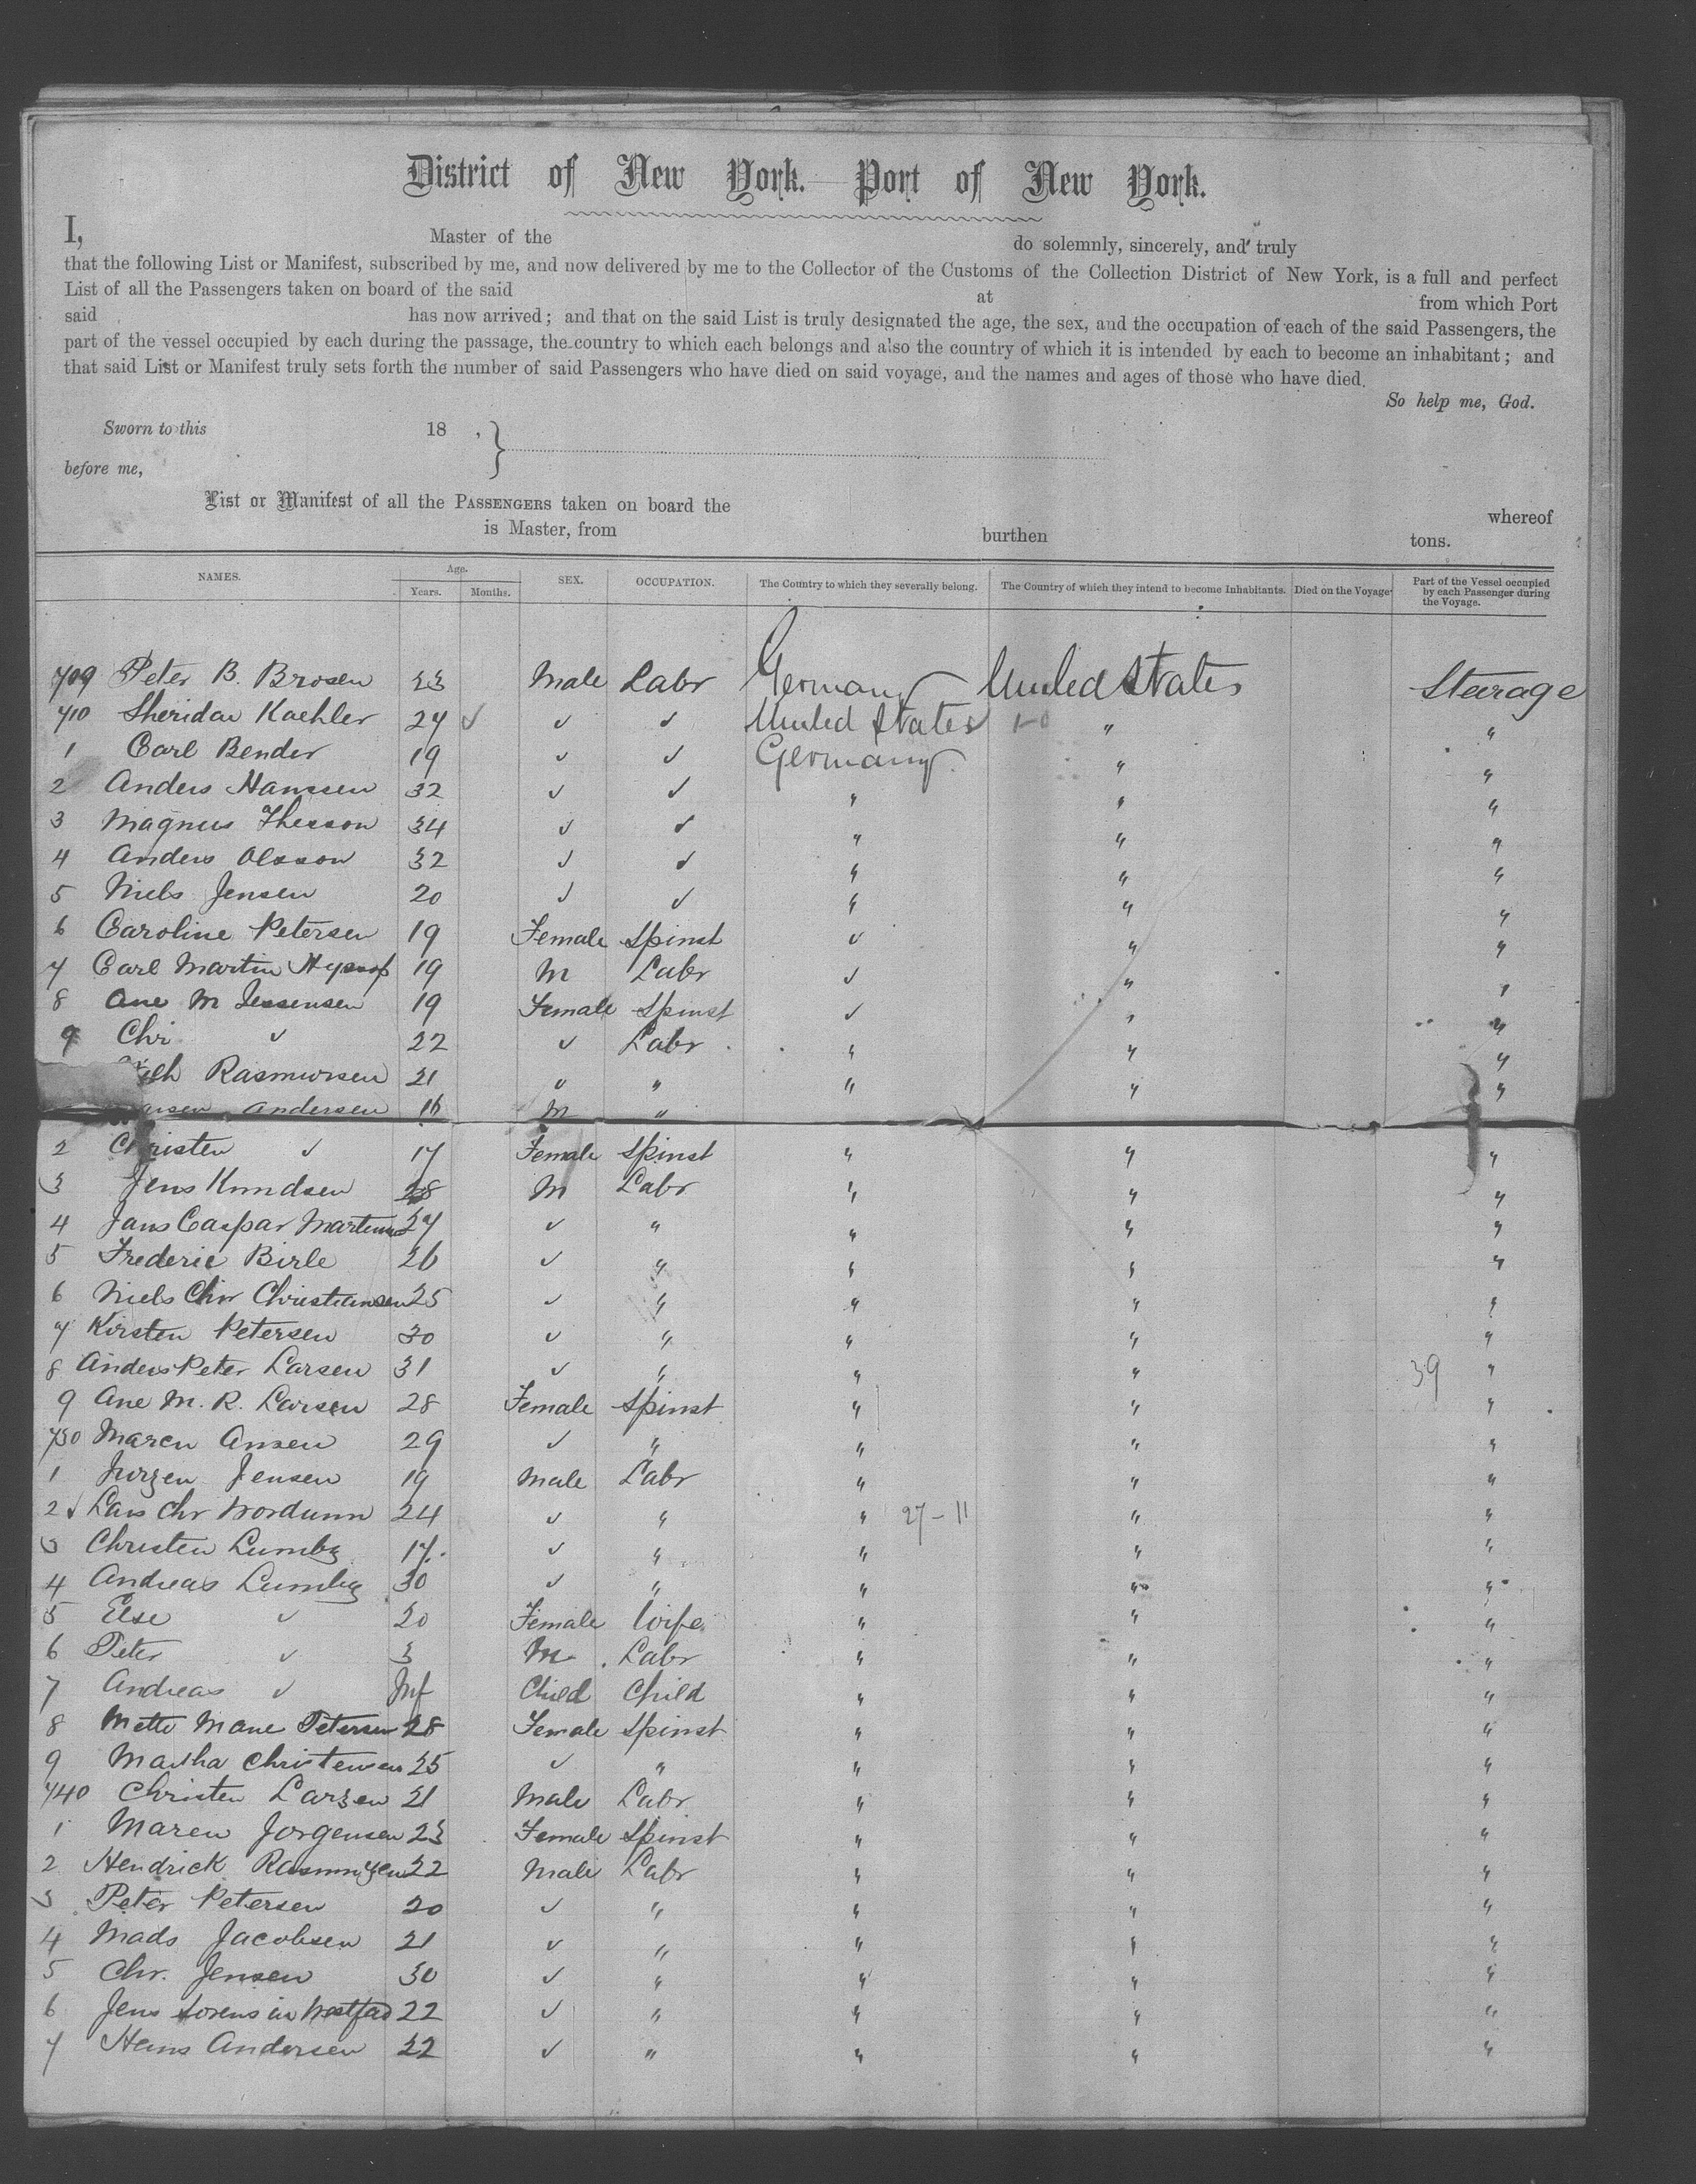 District of New York. Port of New York.
I, Master of the do solemnly, sincerely, and truly
that the following List or Manifest, subscribed by me, and now delivered by me to the Collector of the Customs of the Collection District of New York, is a full and perfect
List of all the Passengers taken on board of the said at from which Port
said has now arrived; and that on the said List is truly designated the age, the sex, and the occupation of each of the said Passengers, the
part of the vessel occupied by each during the passage, the country to which each belongs and also the country of which it is intended by each to become an inhabitant; and
that said List or Manifest truly sets forth the number of said Passengers who have died on said voyage, and the names and ages of those who have died.
So help me, God.
Sworn to this 18 ,
before me,
List or Manifest of all the PASSENGERS taken on board the whereof
is Master, from burthen tons.
NAMES. Age. Years. Months. SEX. OCCUPATION. The Country to which they severally belong. The Country of which they intend to become Inhabitants. Died on the Voyage Part of the Vessel occupied by each Passenger during the Voyage.
709 Peter B. Brosen 23 Male Labr Germany United States Stearage
710 Sheridan Kaehler 24 ✓ ✓ ✓ United States 1-0 " "
1 Carl Bender 19 ✓ ✓ Germany " "
2 Anders Hanssen 32 ✓ ✓ " " "
3 Magnus 34 ✓ ✓ " " "
4 Anders Olsson 32 ✓ ✓ " " "
5 Niels Jensen 20 ✓ ✓ " " "
6 Caroline Petersen 19 Female Spinst ✓ " "
7 Carl Martin 19 M Labr ✓ " "
8 Ane M 19 Female Spinst ✓ " "
9 Chr ✓ 22 ✓ Labr " " "
Rasmussen 21 " " " " "
Andersen M "
2 Christen ✓ 17 Female Spinst " " "
3 Jens Knudsen 28 M Labr " " "
4 Jans Caspar 27 ✓ " " " "
5 Frederic Birle 26 ✓ " " " "
6 Niels Chr Christiansen 25 ✓ " " " "
7 Kirsten Petersen 30 ✓ " " " "
8 Anders Peter Larsen 31 ✓ " " " 39 "
9 Ane M. R. Larsen 28 Female Spinst " " "
730 Maren Ansen 29 ✓ " " " "
1 Jurgen Jensen 19 Male Labr " " "
2 ✓ Lars Chr 24 ✓ " " 27-11 " "
3 Christen Lumby 17 ✓ " " " "
4 Andreas Lumby 30 ✓ " " " "
5 Else ✓ 20 Female Wife " " "
6 Peter ✓ 3 M Labr " " "
7 Andreas ✓ Inf Child Child " " "
8 Mette Marie Petersen 28 Female Spinst " " "
9 Martha Christensen 25 ✓ " " " "
740 Christen Larsen 21 Male Labr " " "
1 Maren Jorgensen 23 Female Spinst " " "
2 Hendrick Rasmussen 22 Male Labr " " "
3 Peter Petersen 20 ✓ " " " "
4 Mads Jacobsen 21 ✓ " " " "
5 Chr. Jensen 30 ✓ " " " "
6 Jens 22 ✓ " " " "
7 Hans Andersen 22 ✓ " " " "